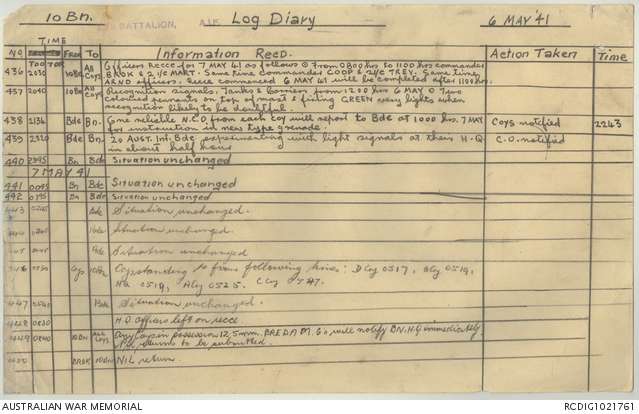 10 Bn. BATTALION, A.I.F. Log Diary 6 MAY '41
TIME
No TOO TOR From To Information Recd. Action Taken Time
436 2030 10Bn All Coys Officers Recce for 7 MAY 41 as follows From 0800 hrs to 1100 hrs commanders
BROK & 2 i/c MART. Same time commander GOOP & 2 i/c TREV. Same time
ARND officers. Recce commenced 6 MAY 41 will be completed after 1100 hrs.
437 2040 10Bn All Coys Recognition signals. Tanks & Carriers from 1200 hrs 6 MAY Two
coloured pennants on top of mast & firing GREEN very lights when
recognition likely to be doubtful.
438 2134 Bde Bn. One reliable N.C.O. from each coy will report to Bde at 1000 hrs. 7 MAY Coys notified 2243
for instruction in new type grenade.
439 2320 Bde Bn. 20 AUST. Inf. Bde experimenting with light signals at their H.Q C.O. notified
in about half hour
440 2345 Bn Bde Situation unchanged
7 MAY 41
441 0045 Bn Bde Situation unchanged
442 0145 Bn Bde Situation unchanged
443 Bde Situation unchanged.
444 Bde Situation unchanged.
445 Bde Situation unchanged
Coys 10Bn Coys standing to from following times: D Coy 0517, B Coy 0519,
HQ 0519, A Coy 0525. C Coy 0547.
447 Bde Situation unchanged.
448 0830 H.Q officers left on recce
449 0840 10Bn All Coys Any Coy in possession 12.5mm. BREDA M.G's will notify BN. H.Q immediately.
Nil returns to be submitted.
450 10Bn NIL return.
AUSTRALIAN WAR MEMORIAL RCDIG1021761